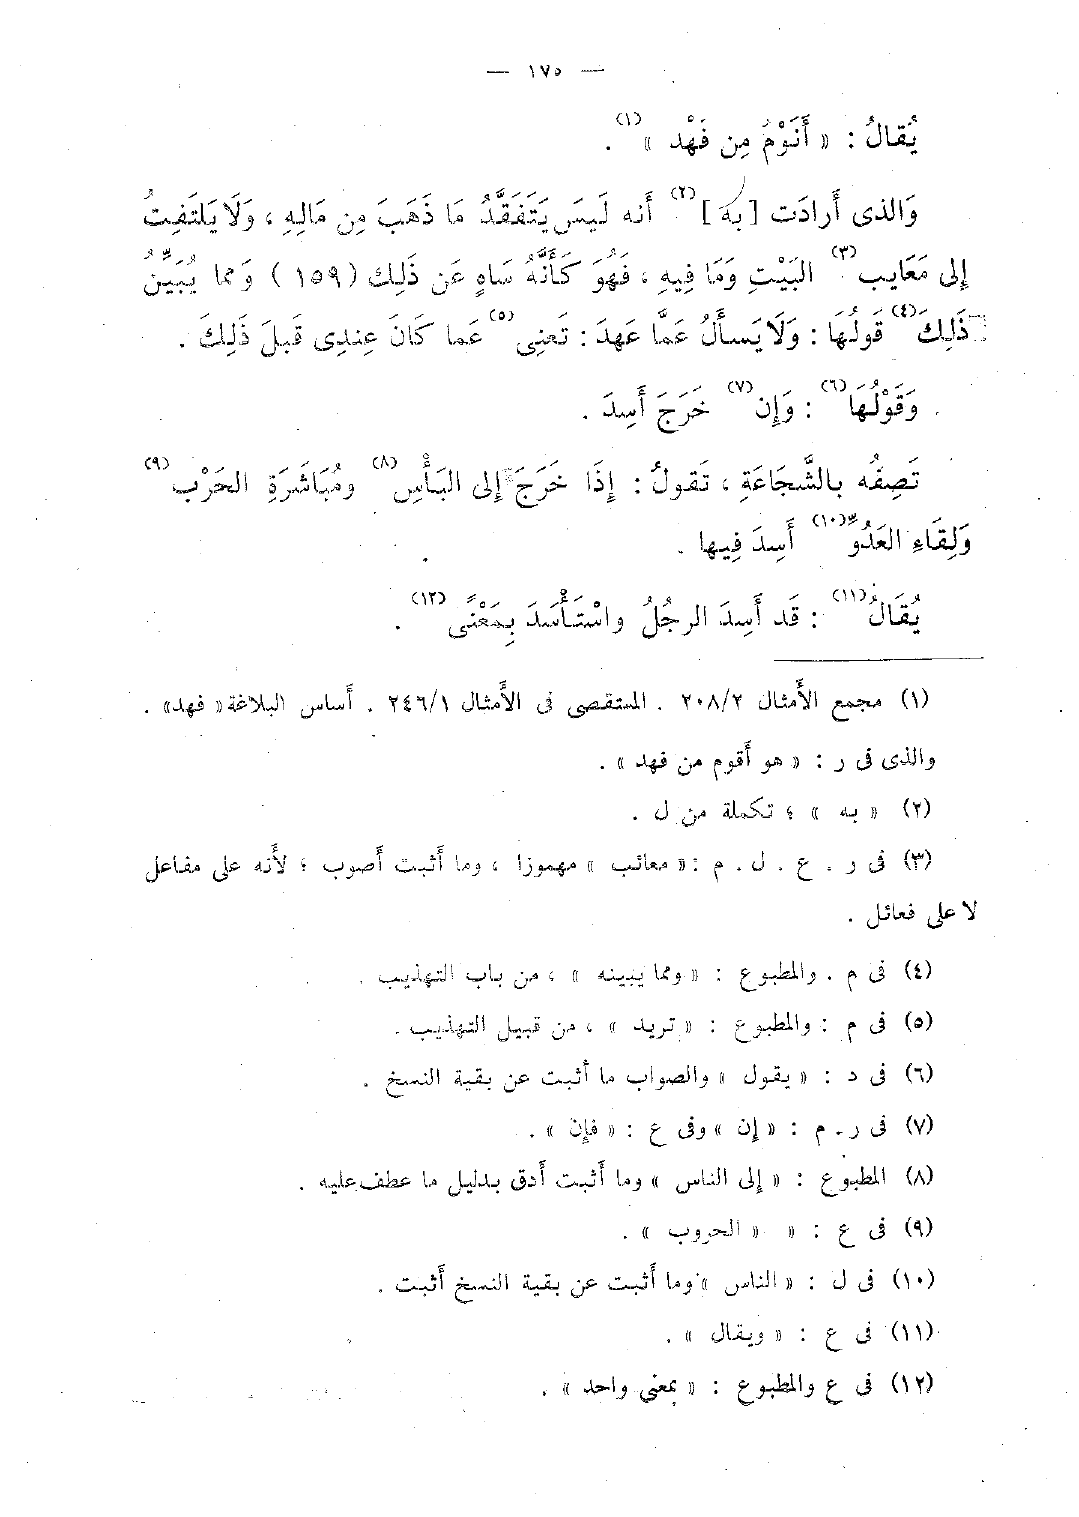 — ١٧٥ —
يُقالُ : « أَنَوْمُ مِن فَهْد »(١) .
وَالذى أَرادَت [ به ](٢) أَنه لَيسَ يَتَفَقَّدُ مَا ذَهَبَ مِن مَالِهِ ، وَلَا يَلتَفِتُ
إلى مَعَايب(٣) البَيْتِ وَمَا فِيهِ ، فَهُوَ كَأَنَّهُ سَاهٍ عَن ذَلِك (١٥٩) وَمما يُبَيِّنُ
ذَلِكَ(٤) قَولُهَا : وَلَا يَسأَلُ عَمَّا عَهِدَ : تَعنِى(٥) عَما كَانَ عِندِى قَبلَ ذَلِكَ .
وَقَوْلُهَا(٦) : وَإِن(٧) خَرَجَ أَسِدَ .
تَصِفُه بالشَّجَاعَةِ ، تَقولُ : إِذَا خَرَجَ إلى البَأْسِ(٨) ومُبَاشَرَةِ الحَرْب(٩)
وَلِقَاءِ العَدُوِّ(١٠) أَسِدَ فِيها .
يُقَالُ(١١) : قَد أَسِدَ الرجُلُ واسْتَأْسَدَ بِمَعْنًى(١٢) .
(١) مجمع الأَمثال ٢٠٨/٢ . المستقصى فى الأَمثال ٢٤٦/١ . أَساس البلاغة « فهد» .
والذى فى ر : « هو أَقوم من فهد » .
(٢) « به » ؛ تكملة من ل .
(٣) فى ر . ع . ل . م : « معائب » مهموزا ، وما أَثبت أَصوب ؛ لأَنه على مفاعل
لا على فعائل .
(٤) فى م . والمطبوع : « ومما يبينه » ، من باب التهذيب .
(٥) فى م : والمطبوع : « تريد » ، من قبيل التهذيب .
(٦) فى د : « يقول » والصواب ما أَثبت عن بقية النسخ .
(٧) فى ر . م : « إن » وفى ع : « فإن » .
(٨) المطبوع : « إلى الناس » وما أَثبت أَدق بدليل ما عطف عليه .
(٩) فى ع : « « الحروب » .
(١٠) فى ل : « الناس » وما أَثبت عن بقية النسخ أَثبت .
(١١) فى ع : « ويقال » .
(١٢) فى ع والمطبوع : « بمعنى واحد » .